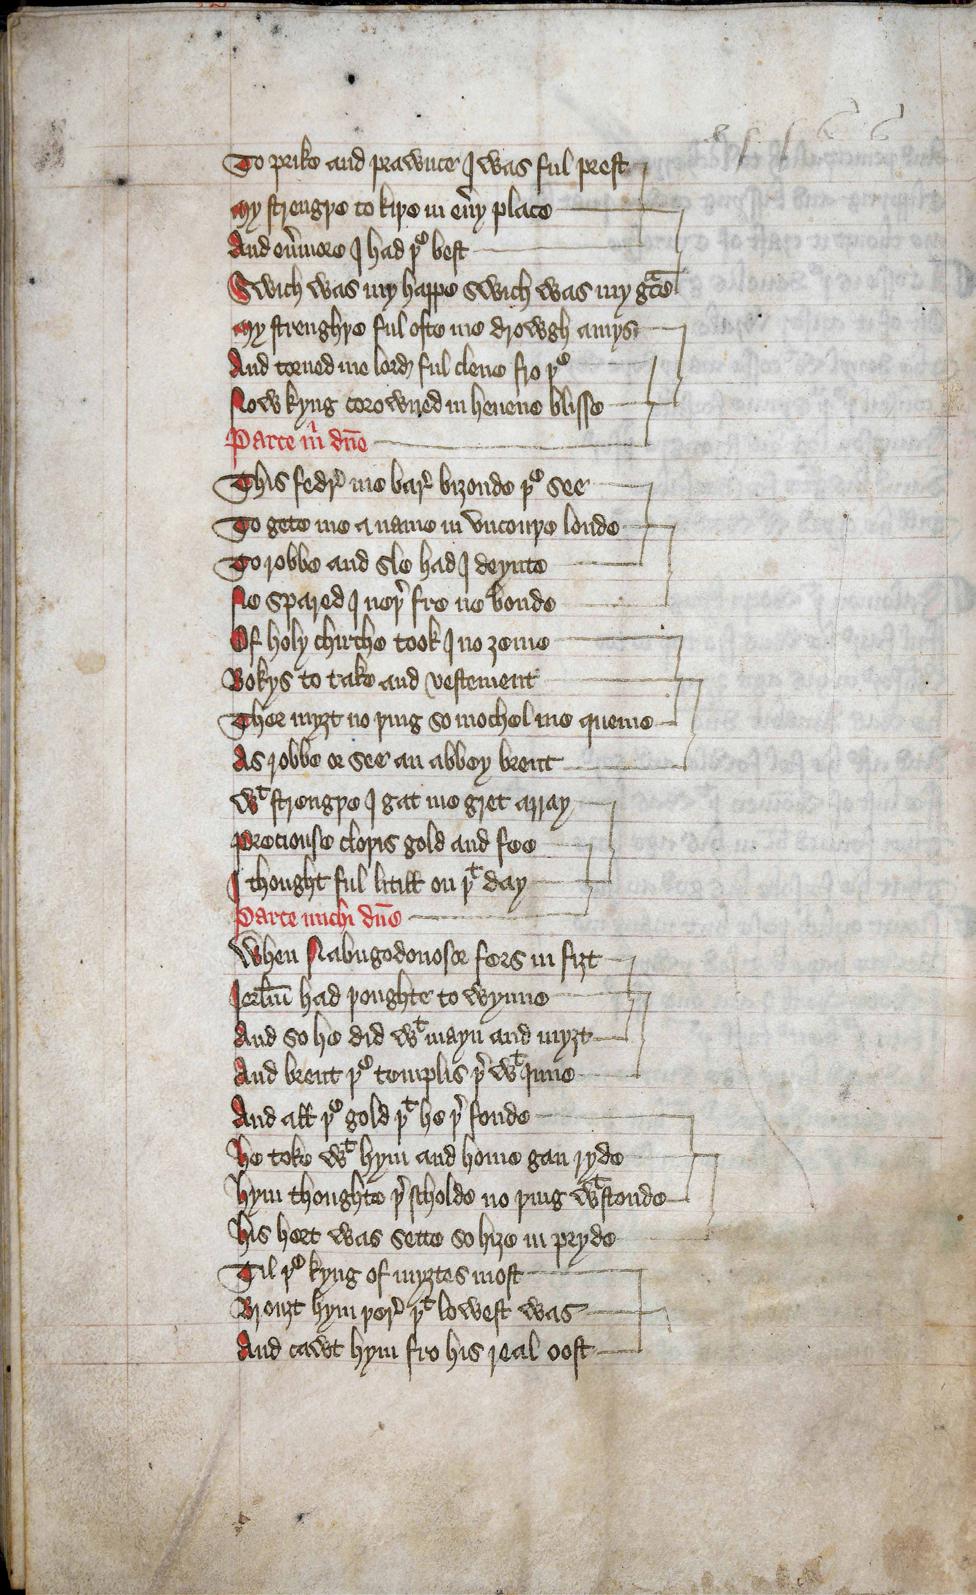 To prike and prawnce I was ful prest
My strengþe to kiþe in eu̾y place
And eu̾more I had þᵉ best
Swich was my happe swich was my gᵃce
My strenghþe ful ofte me drowgh amys
And torned me lord ful clene fro þᵉ
Now kyng corowned in heuene blisse
Parce m̄ dn̄e
This fedr̛ me bar̛ biȝonde þᵉ see
To gete me a name in vncouþe londe
To robbe and sle had I deynte
Ne spared I noþ̛ fre ne bonde
Of holy chirche took I no ȝeme
Bokys to take and vestement
Ther myȝt no þing so mochel me queme
As robbe or see an abbey brent
Wᵗ strengþe I gat me gret array
Preciouse cloþis gold and fee
I thought ful litill on þᵗ day
Parce michi dn̄e
When Nabugodonosor fers in fiȝt
Jerłm̄ had þoughte to wynne
And so he did wᵗ mayn and myȝt
And brent þᵉ templis þ̛ wᵗ Inne
And all þᵉ gold þᵗ he þ̛ fonde
He toke wᵗ hym and home gan ryde
Hym thoughte þ̛ scholde no þing wᵗstonde
His hert was sette so hiȝe in pryde
Til þᵉ kyng of myȝtes most
Brouȝt hym þer̛ þᵗ lowest was
And cawt hym fro his real oost